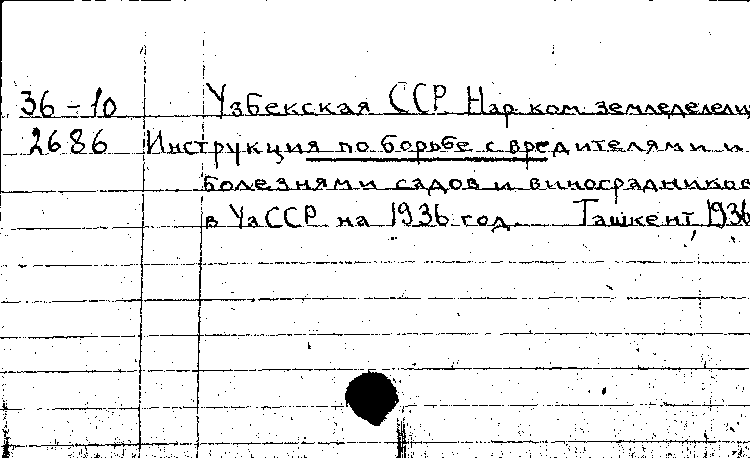 36-10 Узбекская ССР Нар ком земледелец
2686 Инструкция по борьбе с вредителями и
болезнями садов и виноградников
в УзССР на 1936 год. Ташкент, 1936